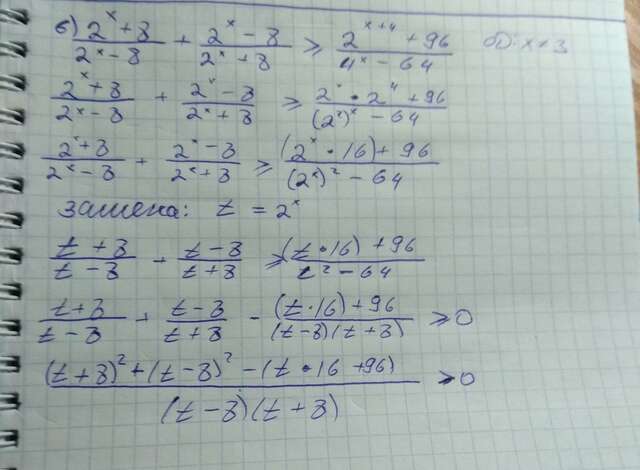 б) (2^x + 8)/(2^x - 8) + (2^x - 8)/(2^x + 8) ≥ (2^{x+4} + 96)/(4^x - 64) OD: x ≠ 3
(2^x + 8)/(2^x - 8) + (2^x - 8)/(2^x + 8) ≥ (2^x · 2^4 + 96)/((2^2)^x - 64)
(2^x + 8)/(2^x - 8) + (2^x - 8)/(2^x + 8) ≥ ((2^x · 16) + 96)/((2^x)^2 - 64)
замена: t = 2^x
(t + 8)/(t - 8) + (t - 8)/(t + 8) ≥ ((t · 16) + 96)/(t^2 - 64)
(t + 8)/(t - 8) + (t - 8)/(t + 8) - ((t · 16) + 96)/((t - 8)(t + 8)) ≥ 0
((t + 8)^2 + (t - 8)^2 - (t · 16 + 96))/((t - 8)(t + 8)) ≥ 0